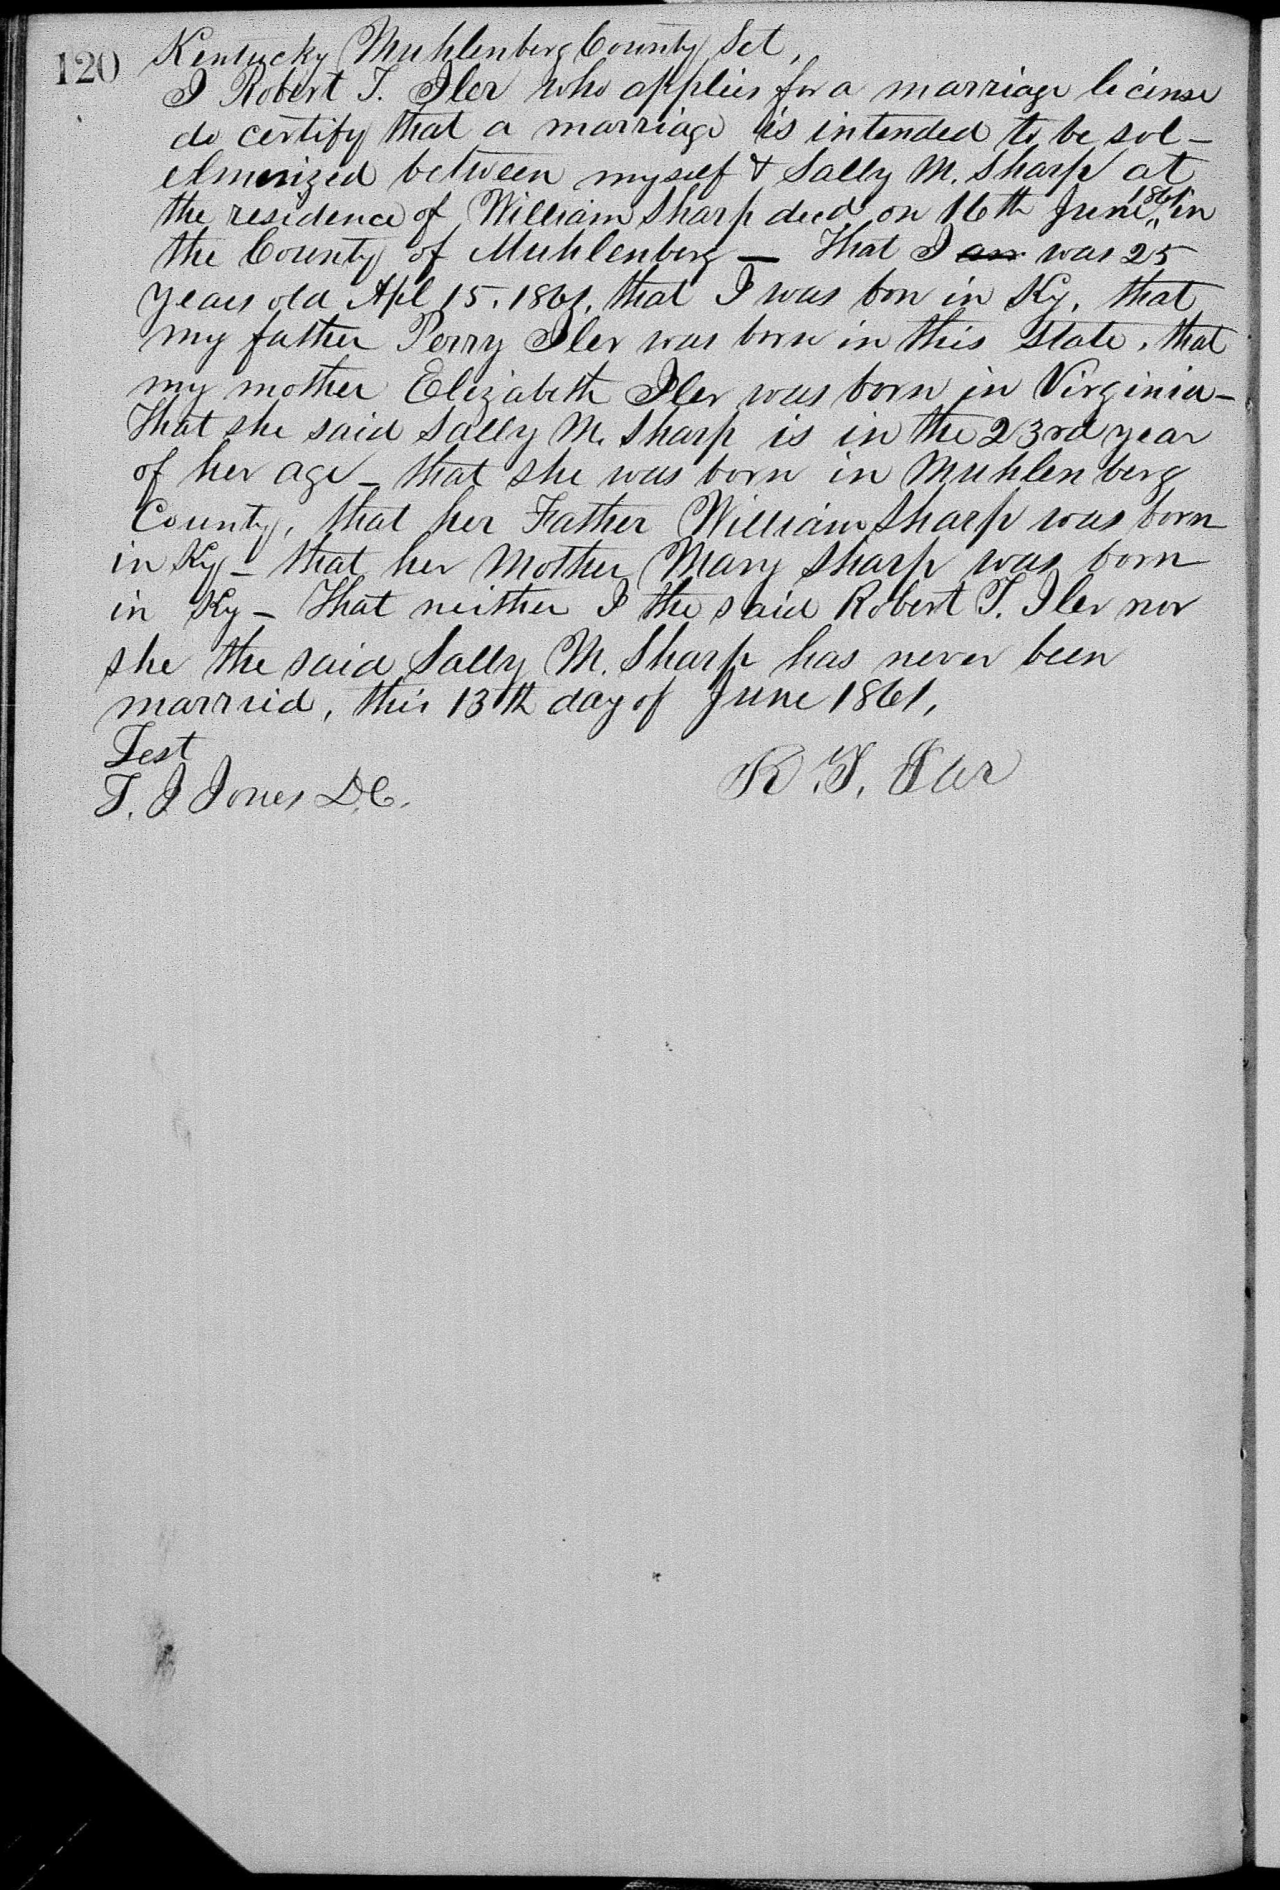 120 Kentucky Muhlenberg County Sct,
I Robert T. Iler who applies for a marriage license
do certify that a marriage is intended to be sol-
elmnized between myself & Sally M. Sharp at
the residence of William Sharp decd on 16th June 1861 in
the County of Muhlenberg — That I am was 25
years old Apl 15. 1861, that I was born in Ky, that
my father Perry Iler was born in this State, that
my mother Elizabeth Iler was born in Virginia -
That she said Sally M. Sharp is in the 23rd year
of her age - that she was born in Muhlenberg
County, that her Father William Sharp was born
in Ky - that her Mother Mary Sharp was born
in Ky - That neither I the said Robert T. Iler nor
she the said Sally M. Sharp has never been
married, this 13th day of June 1861,
Test
T. J Jones D.C.
R. T. Iler